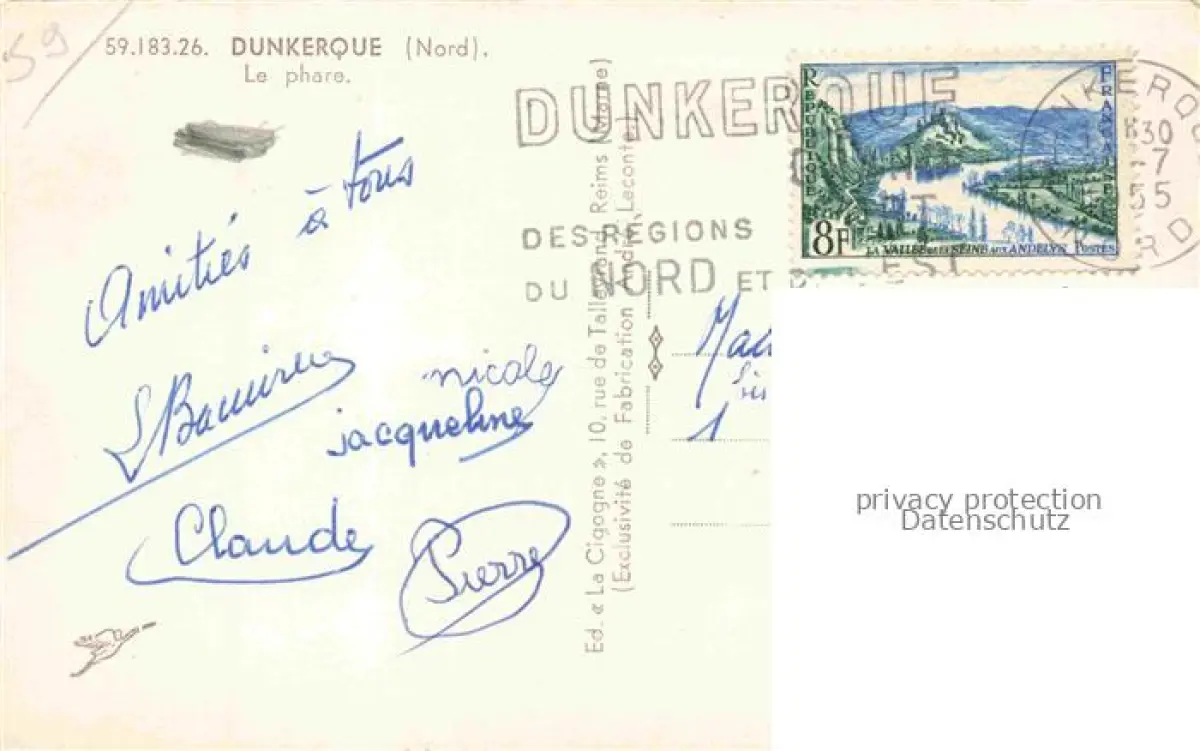 59
59.183.26. DUNKERQUE (Nord).
Le phare.
Amitiés à tous
nicole
jacqueline
Claude
Pierre
Ed. « La Cigogne », 10, rue de Talleyrand, Reims (Marne)
(Exclusivité de Fabrication André Leconte)
DUNKERQUE
DES REGIONS
DU NORD ET
EST
REPUBLIQUE
FRANÇAISE
8F
LA VALLÉE DE LA SEINE AUX ANDELYS POSTES
30
7
55
NORD
1
privacy protection
Datenschutz